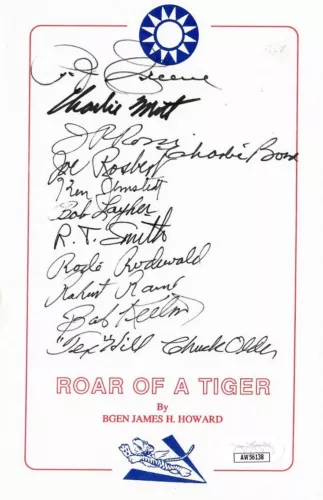 Charlie Mott
J R Rossi
Charlie Bond
Joe Rosbert
Ken Jernstedt
Bob Layher
R. T. Smith
Rode Rodewald
Robert
Bob
"Tex" Hill Chuck Older
ROAR OF A TIGER
By
BGEN JAMES H. HOWARD
AW56138